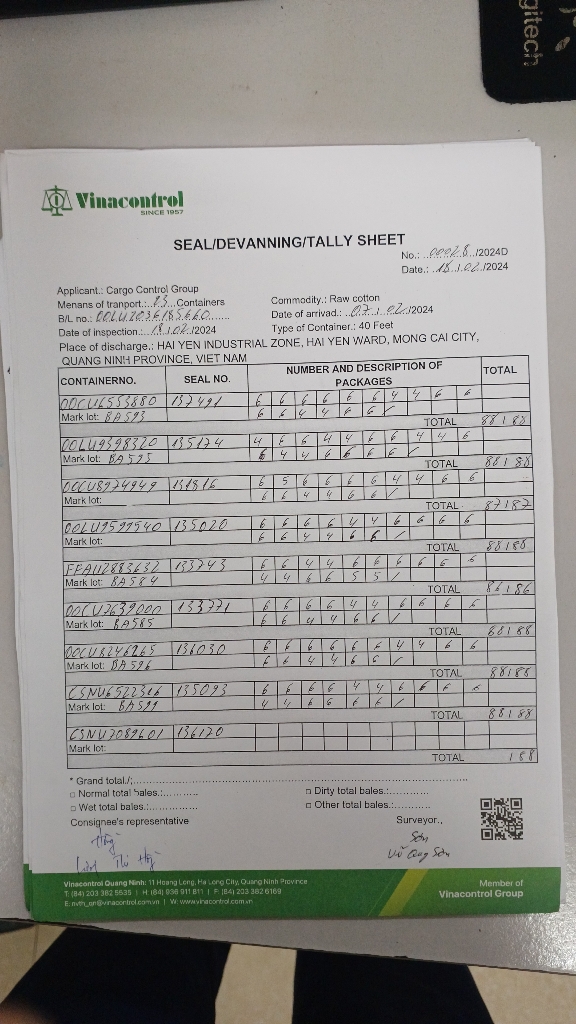 gitech
Vinacontrol
SINCE 1957
SEAL/DEVANNING/TALLY SHEET
No.: 00028/2024D
Date.: 18/02/2024
Applicant.: Cargo Control Group
Menans of tranport.: 23 Containers
Commodity.: Raw cotton
B/L no.: OOLU2036185660
Date of arrivad.: 07/02/2024
Date of inspection.: 18/02/2024
Type of Container.: 40 Feet
Place of discharge.: HAI YEN INDUSTRIAL ZONE, HAI YEN WARD, MONG CAI CITY,
QUANG NINH PROVINCE, VIET NAM
CONTAINERNO. SEAL NO. NUMBER AND DESCRIPTION OF PACKAGES TOTAL
OOCU6553880 137491 6 6 6 6 6 6 4 4 6 6
Mark lot: BA593 6 6 4 4 6 6 /
TOTAL 88/88
OOLU9398320 135174 4 6 6 4 4 6 6 4 4 6
Mark lot: BA595 6 4 4 6 6 6 6 /
TOTAL 88/88
OOCU8974949 131816 6 5 6 6 6 6 4 4 6 6
Mark lot: 6 6 4 4 6 6 /
TOTAL 87/87
OOLU9599540 135020 6 6 6 6 4 4 6 6 6 6
Mark lot: 6 6 4 4 6 6 /
TOTAL 88/88
FFAU2883632 133743 6 6 4 4 6 6 6 6 6 6
Mark lot: BA584 4 4 6 6 5 5 /
TOTAL 86/86
OOCU7639000 133771 6 6 6 6 4 4 6 6 6 6
Mark lot: BA585 6 6 4 4 6 6 /
TOTAL 88/88
OOCU8246265 136030 6 6 6 6 6 6 4 4 6 6
Mark lot: BA596 6 6 4 4 6 6 /
TOTAL 88/88
CSNU6522316 135093 6 6 6 6 4 4 6 6 6 6
Mark lot: BA599 4 4 6 6 6 6 /
TOTAL 88/88
CSNU7089601 136120
Mark lot:
TOTAL /88
* Grand total./:
□ Normal total bales.:
□ Dirty total bales.:
□ Wet total bales.:
□ Other total bales.:
Consignee's representative
Surveyor.,
Sơn
Vinacontrol Quang Ninh: 11 Hoang Long, Ha Long City, Quang Ninh Province
T: (84) 203 382 5535 | H: (84) 936 911 811 | F: (84) 203 382 6169
E: nvth_qn@vinacontrol.com.vn | W: www.vinacontrol.com.vn
Member of
Vinacontrol Group